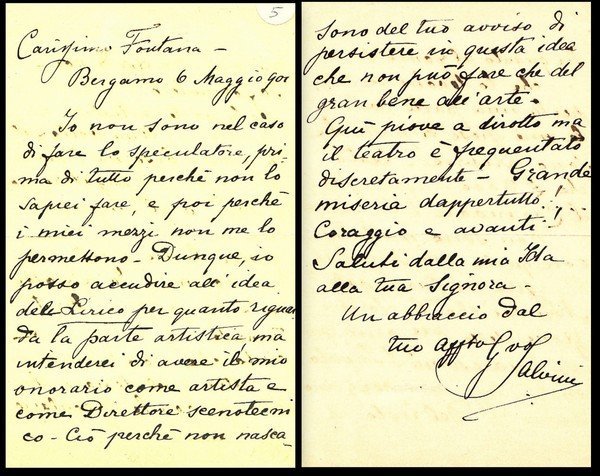 5
Carissimo Fontana -
Bergamo 6 Maggio 901
Io non sono nel caso
di fare lo speculatore, pri-
ma di tutto perchè non lo
saprei fare, e poi perchè
i miei mezzi non me lo
permettono - Dunque, io
posso accudire all'idea
del Lirico per quanto riguar
da la parte artistica, ma
intenderei di avere il mio
onorario come artista e
come Direttore scenotecni
co - Ciò perchè non nasca-
Sono del tuo avviso di
persistere in questa idea
che non può fare che del
gran bene all'arte -
Qui piove a dirotto ma
il teatro è frequentato
discretamente - Grande
miseria dappertutto!
Coraggio e avanti!
Saluti dalla mia Ida
alla tua Signora -
Un abbraccio dal
tuo affto Gvo
Salvini